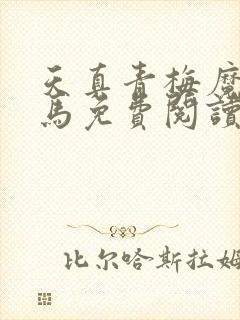 天真青梅魔
馬免費閱讀
比尔哈斯拉姆